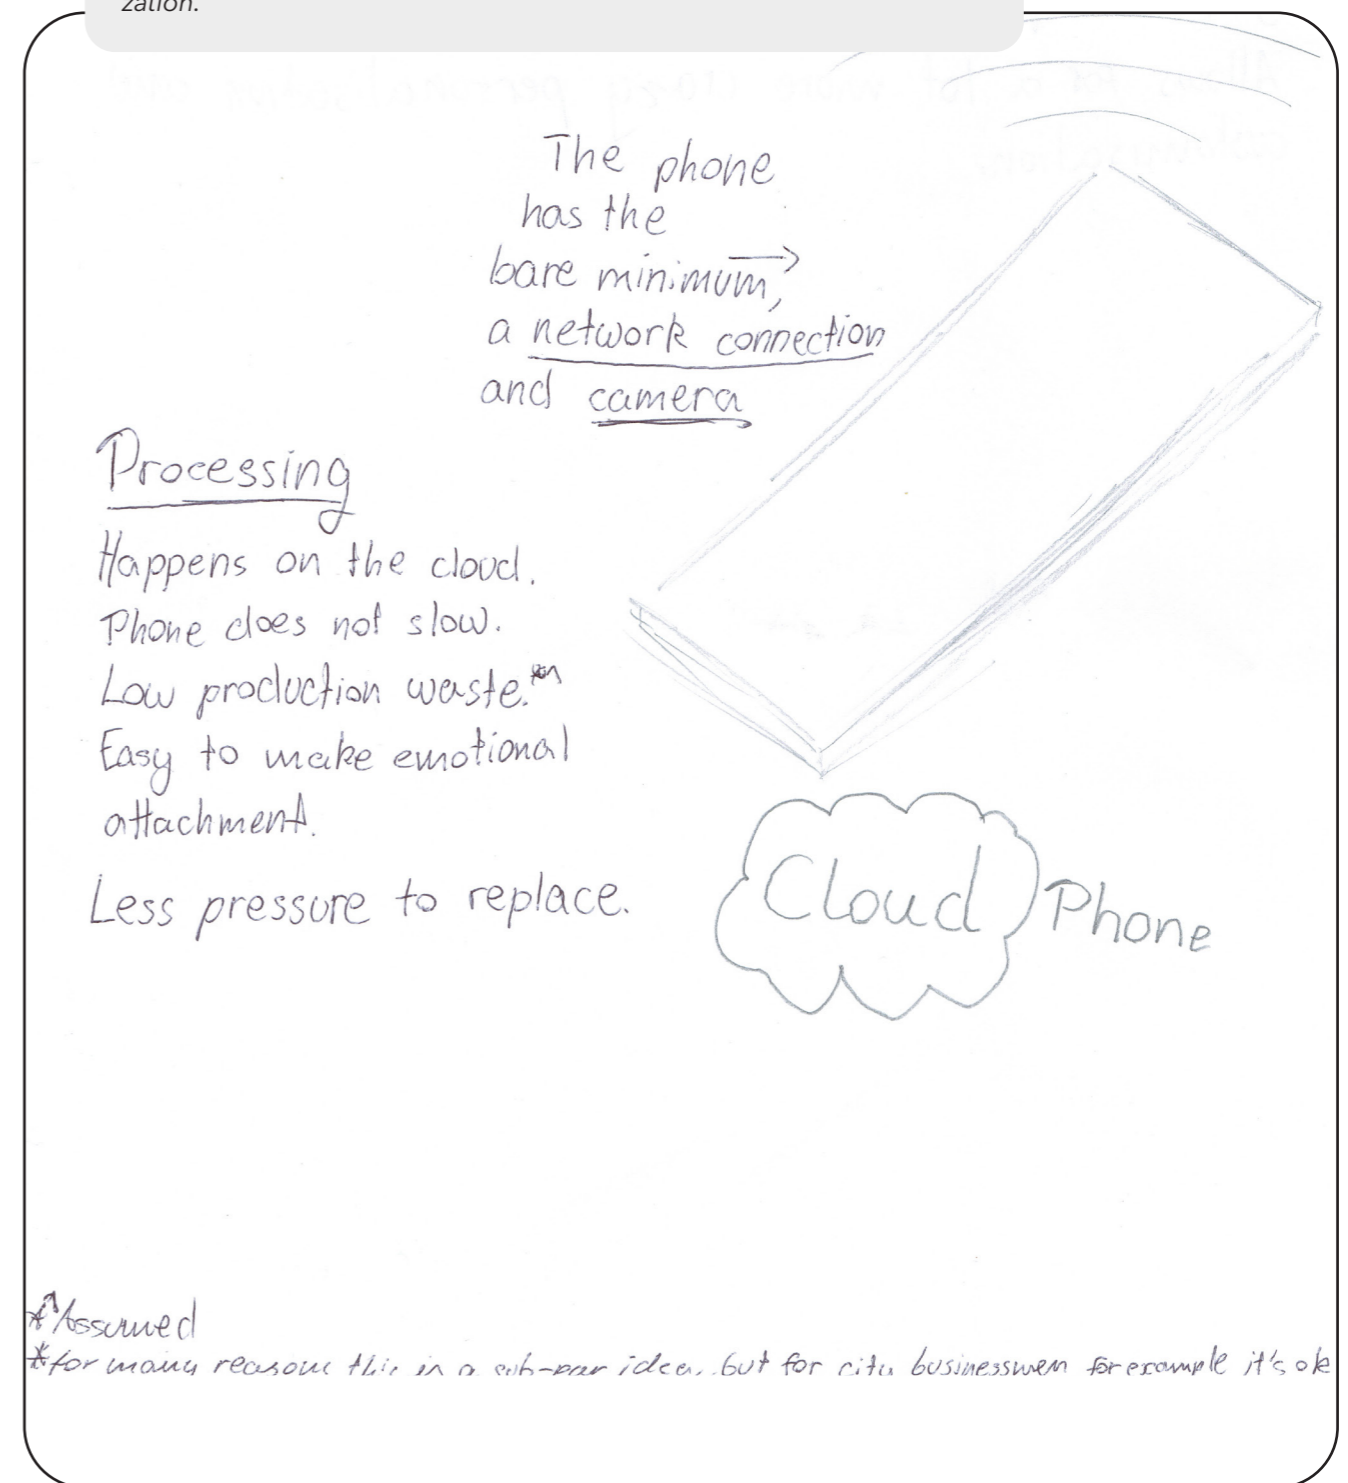 zation.
The phone
has the
bare minimum,
a network connection
and camera
Processing
Happens on the cloud.
Phone does not slow.
Low production waste.*
Easy to make emotional
attachment.
Less pressure to replace.
Cloud Phone
*Assumed
*for many reasons this is a sub-par idea, but for city businessmen for example it's ok